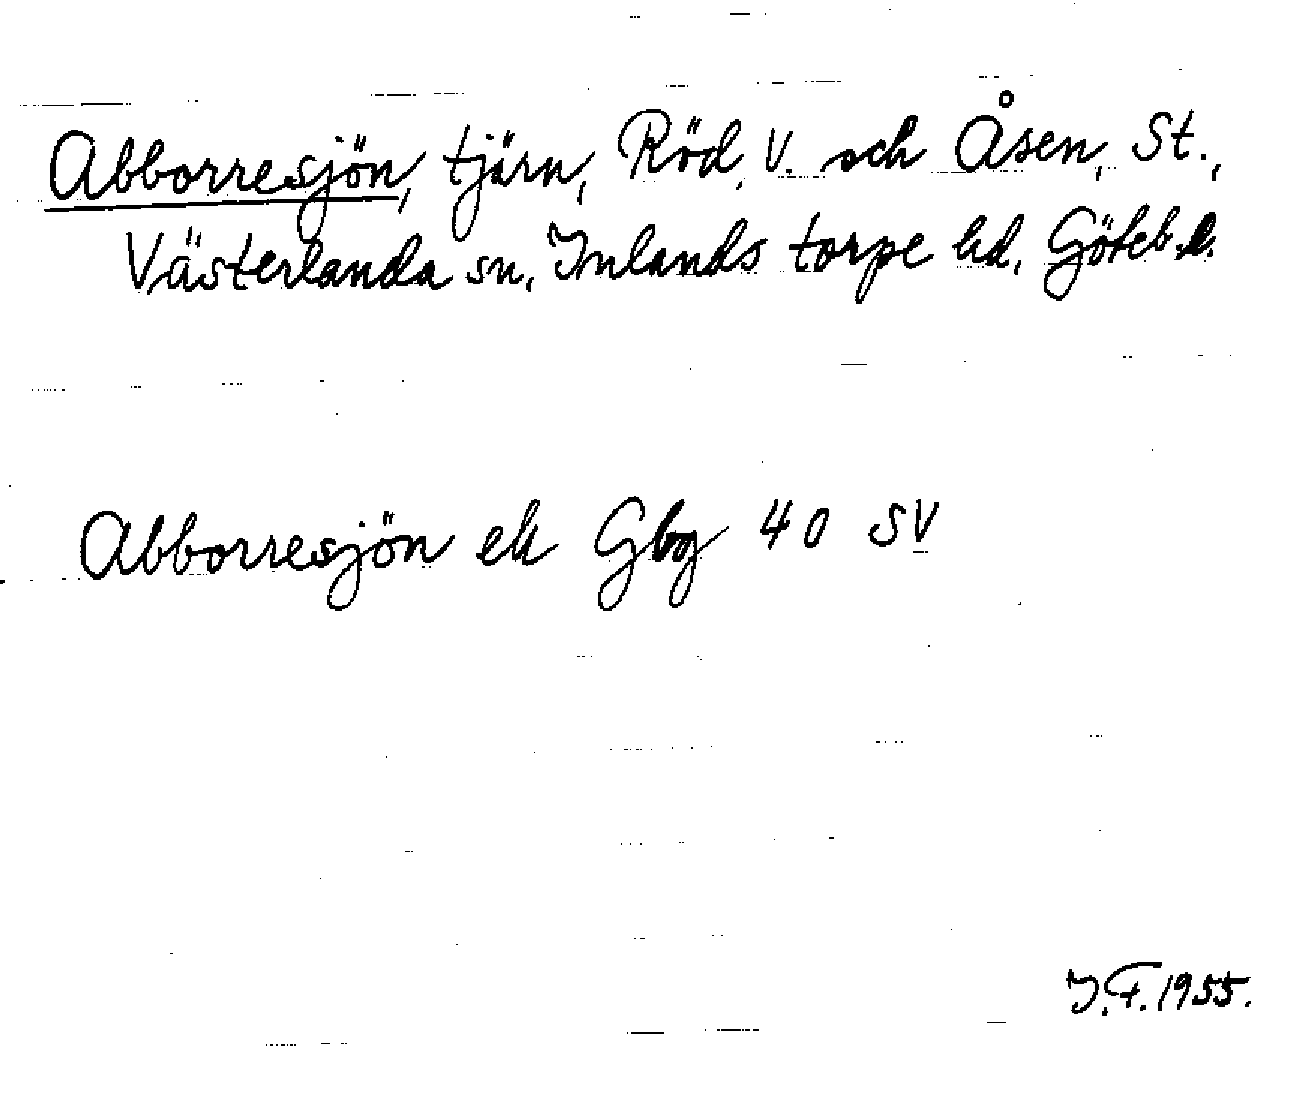 Abborresjön, tjärn, Röd, V. och Åsen, St.,
Västerlanda sn, Inlands torpe hd, Göteb. l.
Abborresjön ek Gbg 40 SV
I.F. 1955.